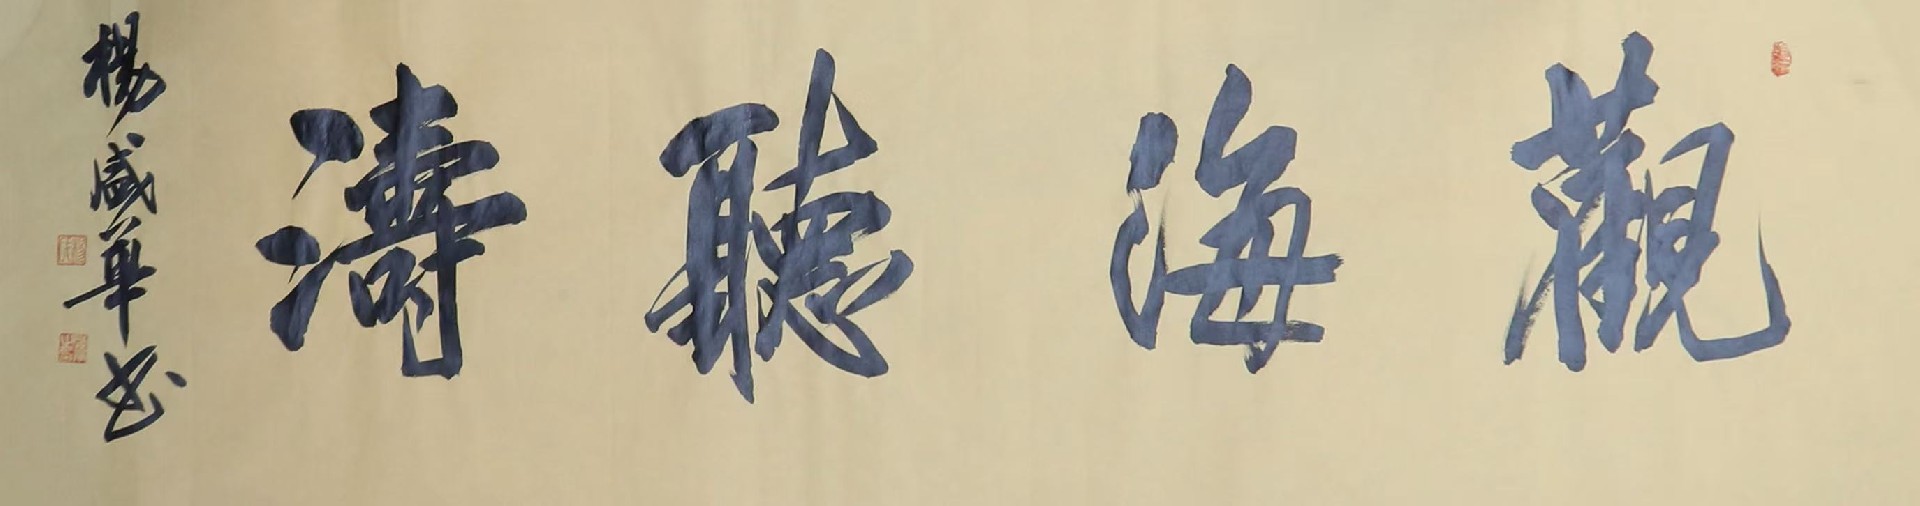 觀海聽濤
楊盛華书